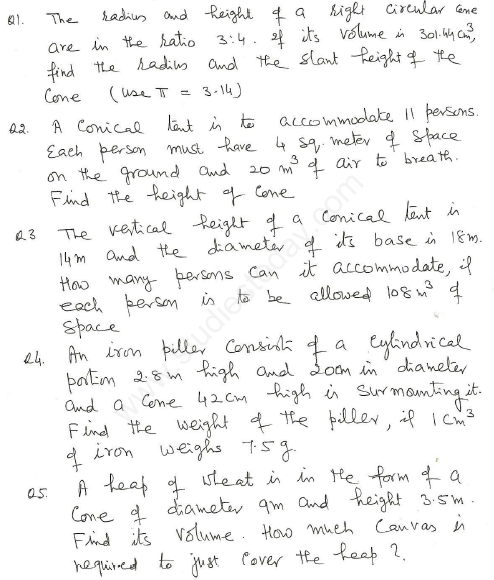 Q1. The radius and height of a right circular Cone
are in the ratio 3:4. If its volume is 301.44 cm³,
find the radius and the slant height of the
Cone (use π = 3.14)
Q2. A Conical tent is to accommodate 11 persons.
Each person must have 4 sq. meter of Space
on the ground and 20 m³ of air to breath.
Find the height of Cone
Q3 The vertical height of a conical tent is
14m and the diameter of its base is 18m.
How many persons can it accommodate, if
each person is to be allowed 108 m³ of
Space
Q4. An iron piller Consists of a Cylindrical
portion 2.8m high and 20cm in diameter
and a Cone 42cm high is Surmounting it.
Find the weight of the piller, if 1 cm³
of iron weighs 7.5 g.
Q5. A heap of wheat is in the form of a
Cone of diameter 9m and height 3.5m.
Find its volume. How much Canvas is
required to just cover the heap?
www.studiestoday.com